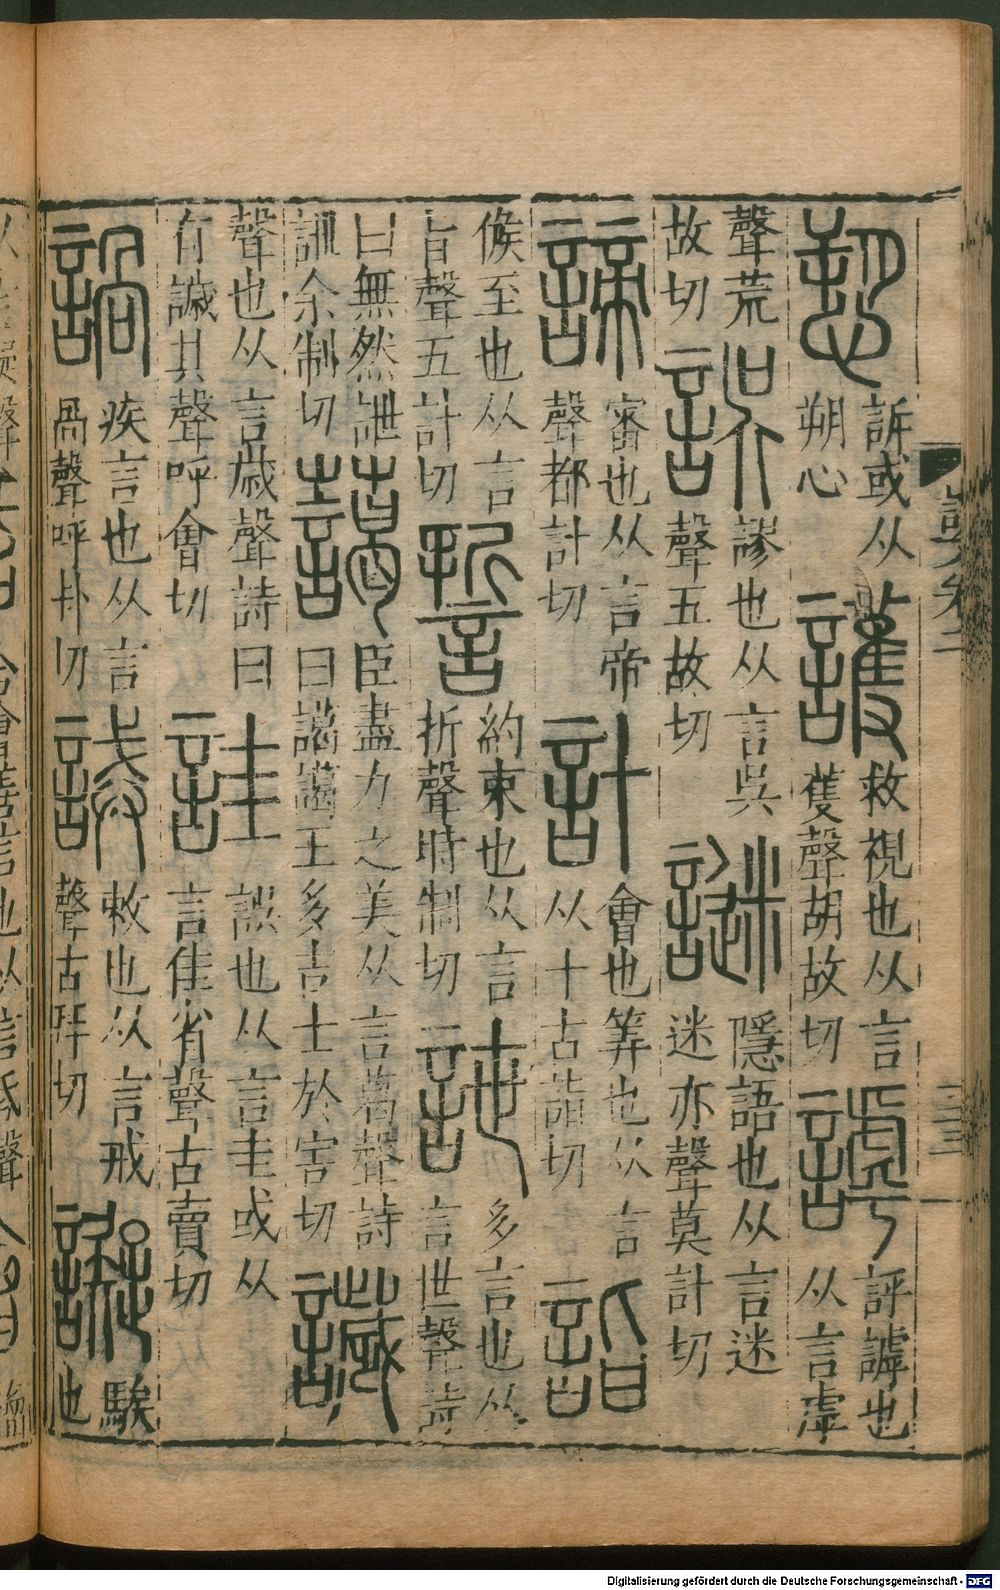 愬
訴或从
朔心
護
救視也从言
蒦聲胡故切
謼
評謼也
从言虖
聲荒
故切
誤
謬也从言吳
聲五故切
謎
隱語也从言迷
迷亦聲莫計切
諦
審也从言帝
聲都計切
計
會也筭也从言
从十古詣切
詣
候至也从言
旨聲五計切
誓
約束也从言
折聲時制切
詍
多言也从
言世聲詩
曰無然詍
詍余制切
藹
臣盡力之美从言葛聲詩
曰藹藹王多吉士於害切
䜋
聲也从言歲聲詩曰
有䜋其聲呼會切
詿
誤也从言圭或从
言佳省聲古賣切
䛻
疾言也从言
咼聲呼卦切
誡
敕也从言戒
聲古拜切
譺
騃
也
Digitalisierung gefördert durch die Deutsche Forschungsgemeinschaft - DFG